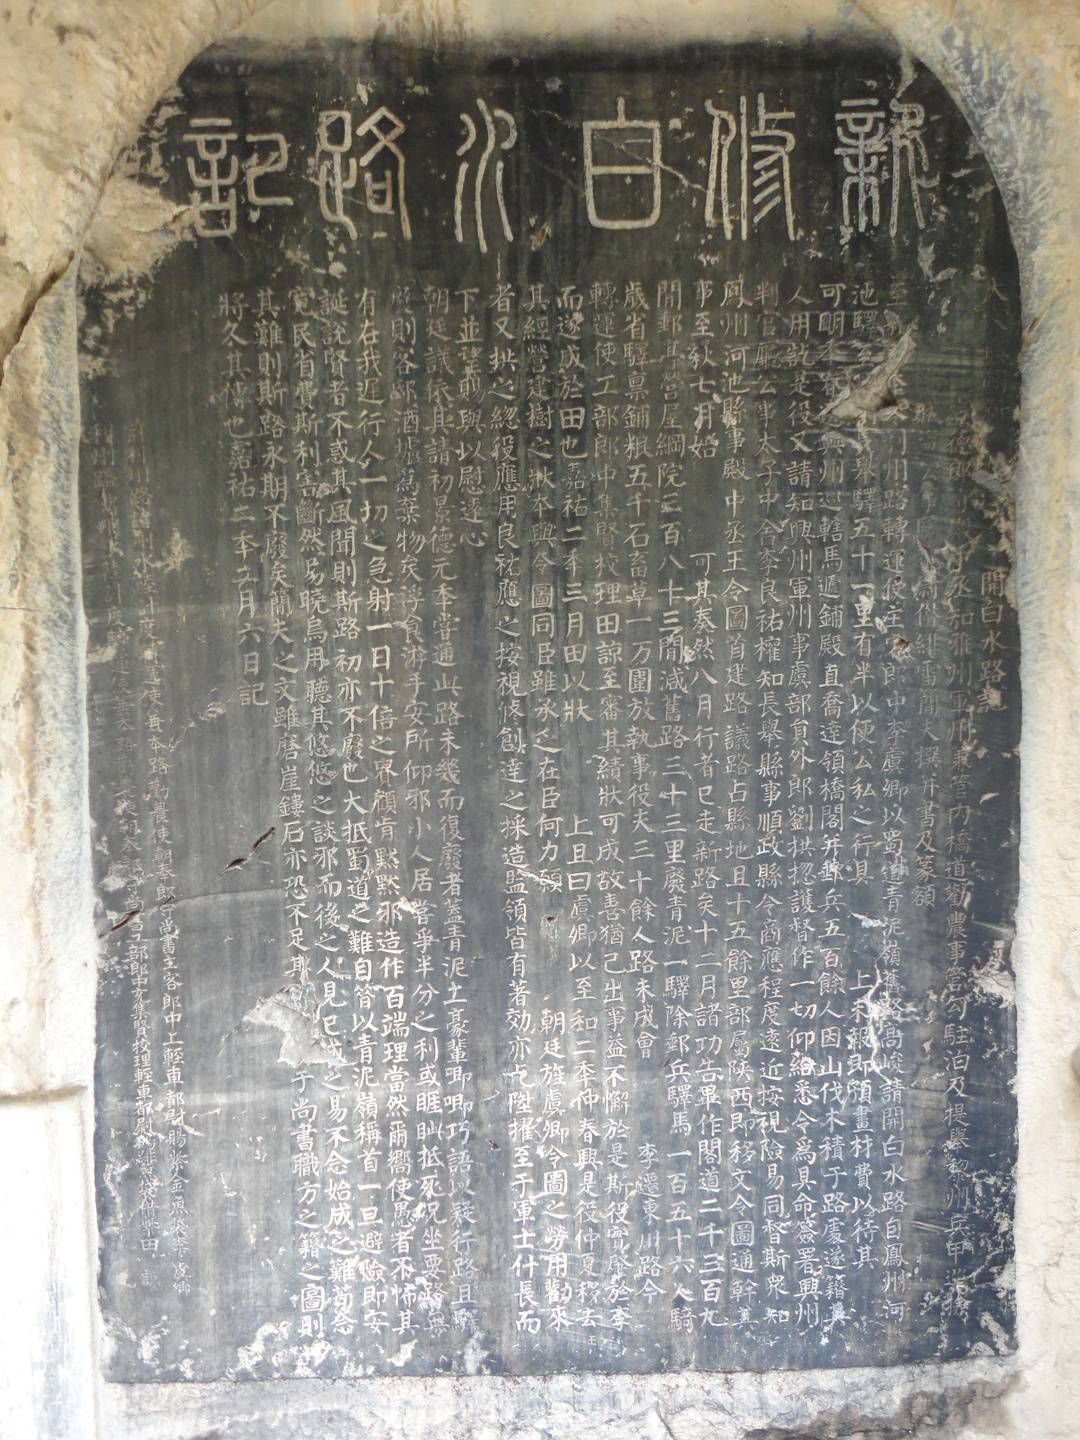 新修白水路記
大 開白水路記
德郎 中丞知雅州軍州兼管內橋道勸農事管勾駐泊及提舉黎州兵甲巡檢
雷簡夫撰并書及篆額
至和 利州路轉運使主 郎中李虞卿以蜀道青泥嶺舊路高峻請開白水路自鳳州河
池驛 舉驛五十一里有半以便公私之行具 上未報即預畫材費以待其
可明年 興州巡轄馬遞鋪殿直喬達領橋閣并郵兵五百餘人因山伐木積于路處遂籍其
人用訖是役又請知興州軍州事虞部員外郎劉拱總護督作一切仰給悉令爲具命簽署興州
判官廳公事太子中舍李良祐權知長舉縣事順政縣令商應程度遠近按視險易同督斯衆知
鳳州河池縣事殿中丞王令圖首建路議路占縣地且十五餘里部屬陝西即移文令圖通幹其
事至秋七月始 可其奏然八月行者已走新路矣十二月諸功告畢作閣道二千三百九
間郵亭營屋綱院三百八十三間減舊路三十三里廢青泥一驛除郵兵驛馬一百五十六人騎
歲省驛稟鋪粮五千石畜草一万圍放執事役夫三十餘人路未成會 李遷東川路今
轉運使工部郎中集賢校理田諒至審其績狀可成故喜猶己出事益不懈於是斯役實肇於李
而遂成於田也嘉祐二年三月田以狀 上且曰虞卿以至和二年仲春興是役仲夏移去
其經營建樹之狀本與令圖同臣雖承乏在臣何力願 朝廷旌虞卿令圖之勞用勸來
者又拱之總役應用良祐應之按視修創達之採造監領皆有著効亦乞陞擢至于軍士什長而
下並望賜與以慰遠心
朝廷議依其請初景德元年嘗通此路未幾而復廢者蓋青泥土豪輩唧唧巧語以疑行路且驛
廢則客邸酒壚爲棄物矣浮食游手安所仰邪小人居嘗爭半分之利或睚眦抵死況坐要路無
有在我遲行人一切之急射一日十倍之資顧肯默默邪造作百端理當然爾嚮使愚者不怖其
誕說賢者不惑其風聞則斯路初亦不廢也大抵蜀道之難自昔以青泥嶺稱首一旦避險即安
寬民省費斯利害斷然易曉烏用聽其悠悠之談邪而後之人見已成之易不念始成之難苟念
其難則斯路永期不廢矣簡夫之文雖磨崖鏤石亦恐不足其 于尚書職方之籍之圖則
將久其傳也嘉祐二年二月六日記
利州路轉運 水陸計度 運使兼本路勸農使朝奉郎守尚書主客郎中上輕車都尉賜紫金魚袋李虞卿
利州路 度 勸農使朝奉郎守尚書工部郎中充集賢校理輕車都尉賜緋魚袋借紫田諒